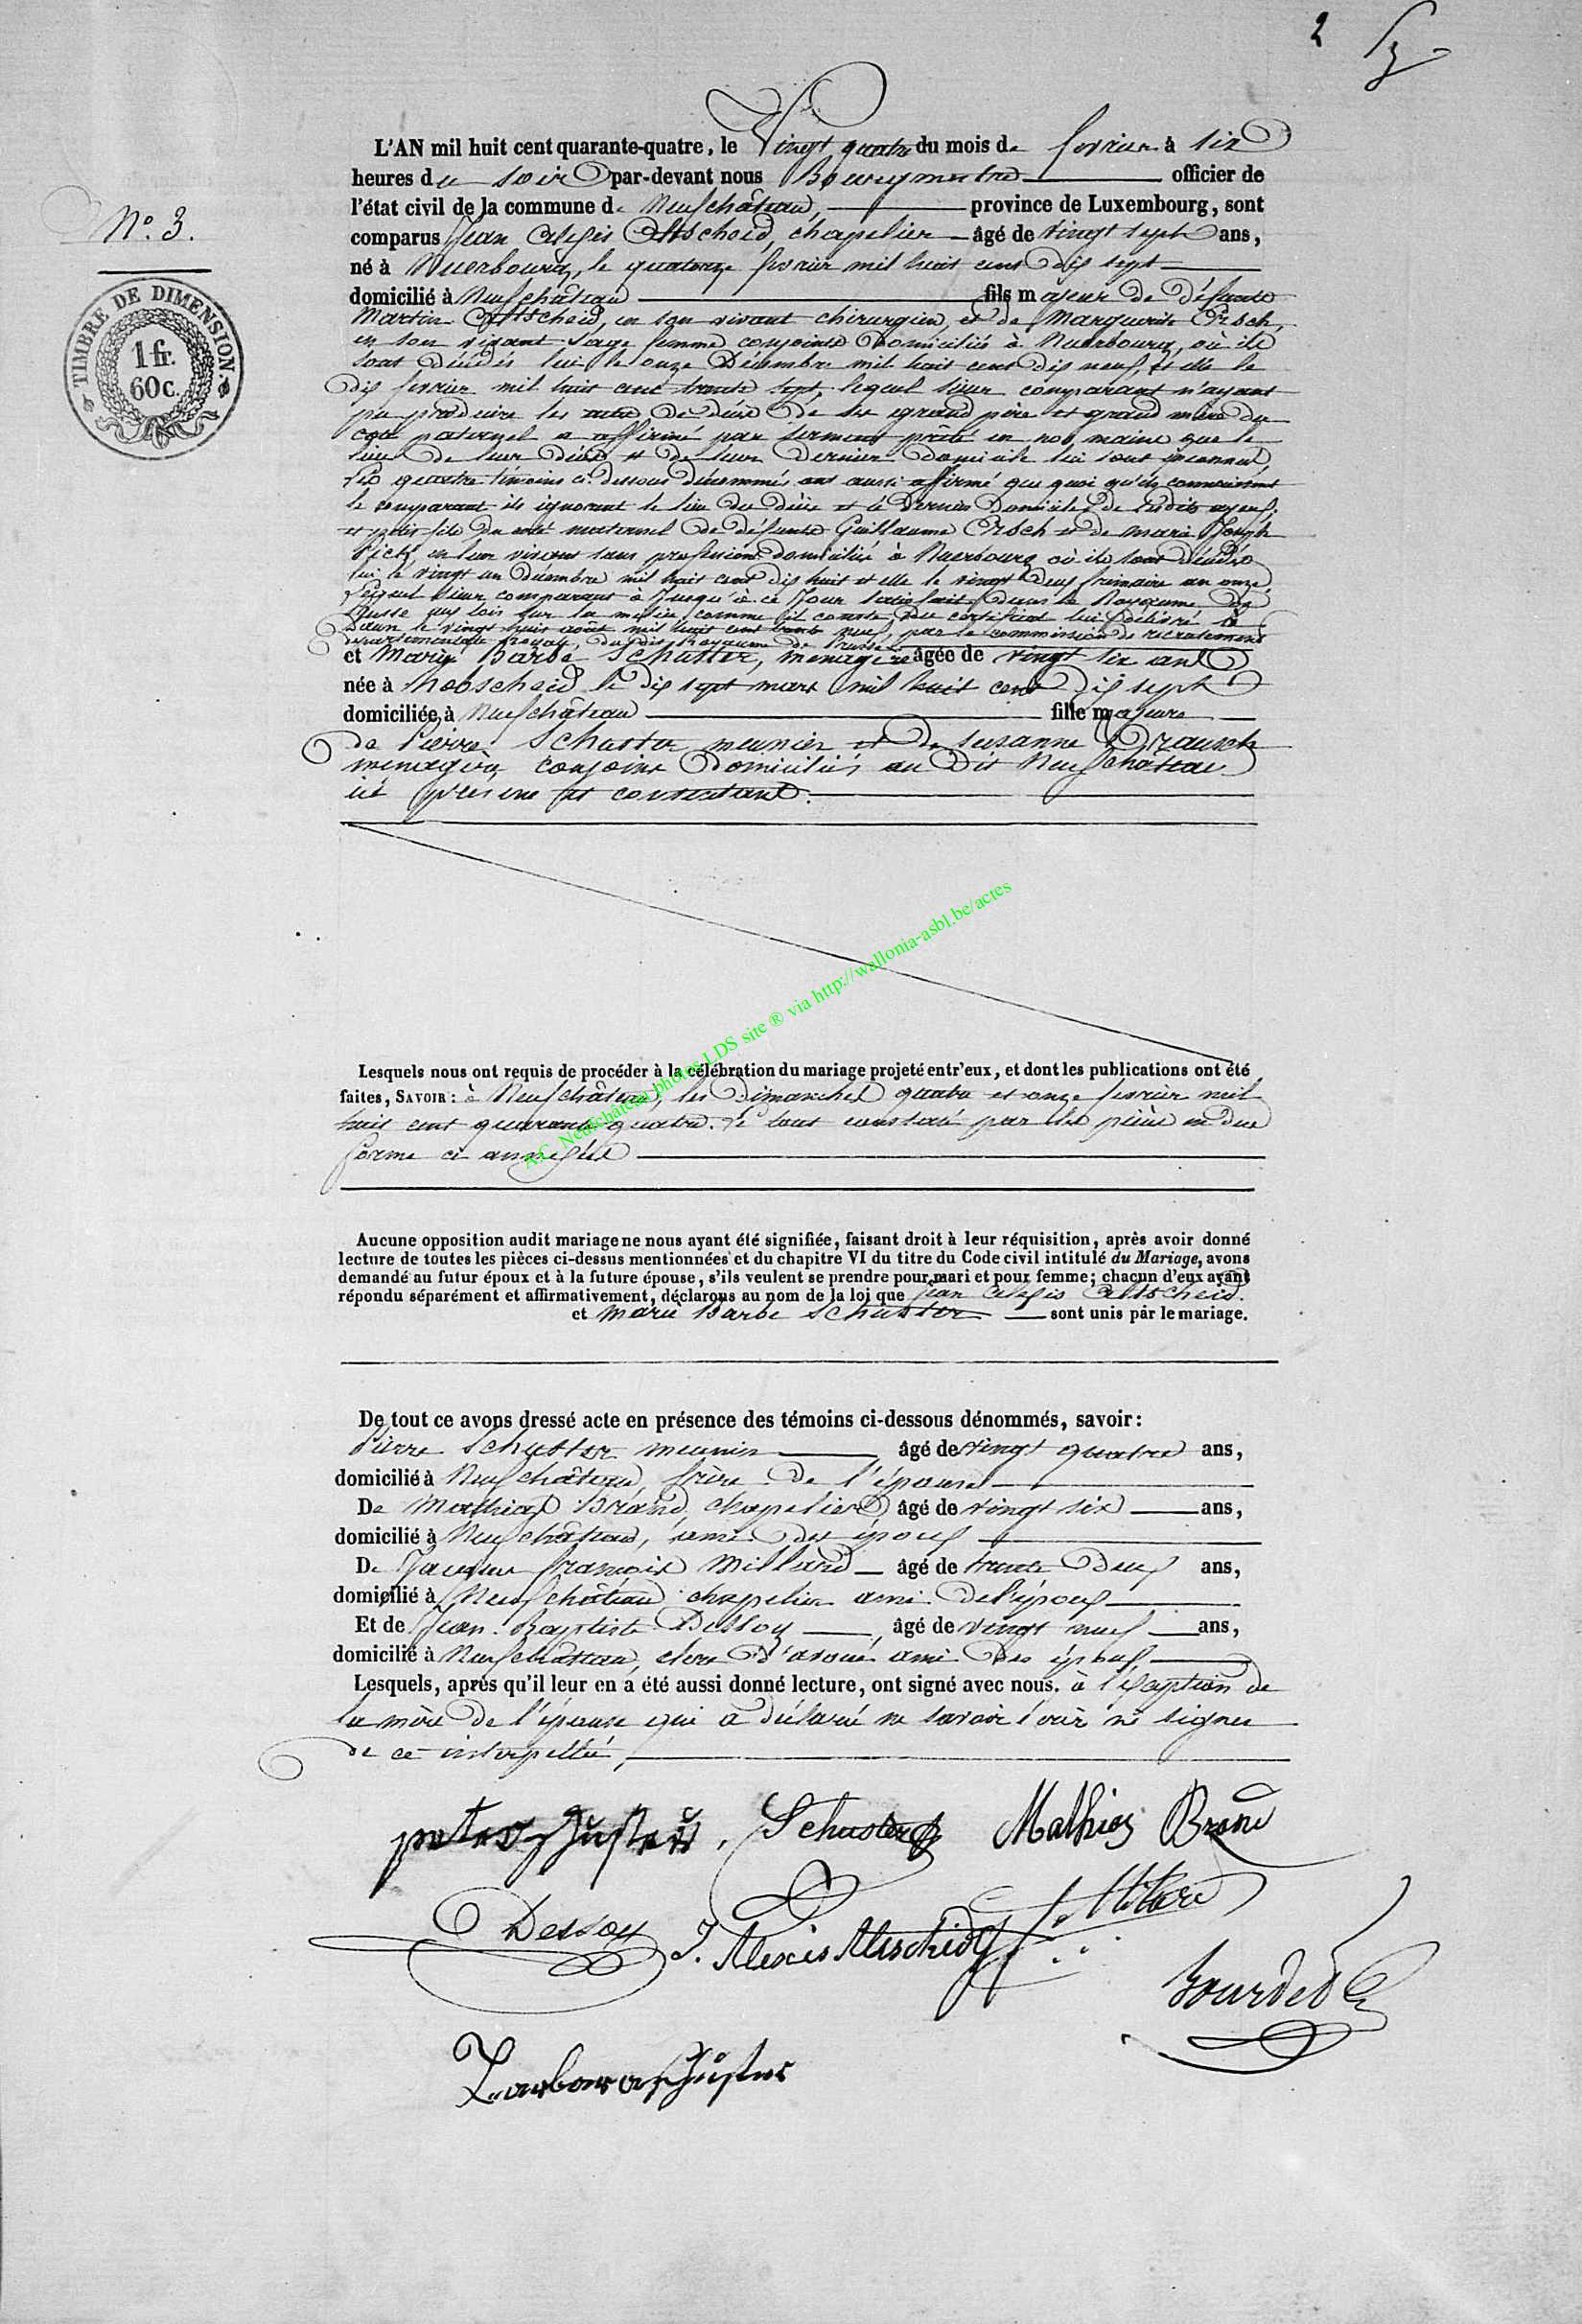 2
L'AN mil huit cent quarante-quatre, le Vingt quatre du mois de fevrier à six
heures du soir par-devant nous Bourgmestre officier de
l'état civil de la commune de Neufchâteau, province de Luxembourg, sont
N°. 3.
comparus Jean Alexis Altscheid, chapelier âgé de vingt sept ans,
né à Nuerbourg, le quatorze fevrier mil huit cent dix sept
domicilié à Neufchâteau fils majeur de défunts
TIMBRE DE DIMENSION.
1 fr.
60 c.
Martin Altscheid, en son vivant chirurgien, et de Marguerite Ersch,
en son vivant sage femme conjoints domiciliés à Nuerbourg, où ils
sont décédés lui le onze Décembre mil huit cent dix neuf, et elle le
dix fevrier mil huit cent trente sept, lequel sieur comparant n'ayant
pu produire les actes de décès de ses grand père et grand mère du
coté paternel a affirmé par serment prêté en nos mains que le
lieu de leur décès et de leur dernier domicile lui sont inconnus,
Les quatre témoins ci dessous dénommés ont aussi affirmé que quoi qu'ils connaissent
le comparant ils ignorent le lieu du décès et le dernier domicile de sesdits ayeux,
et petit fils du coté maternel de défunts Guillaume Ersch et de marie Joseph
en leur vivant sans profession domiciliés à Nuerbourg où ils sont décédés
lui le vingt un Décembre mil huit cent dix huit et elle le vingt deux frimaire an onze,
Lequel sieur comparant à jusqu'à ce jour satisfait dans le Royaume de
Prusse aux lois sur la milice comme il conste du certificat lui délivré à
Daun le vingt huit août mil huit cent trente neuf, par la commission de recrutement
départementale royale, du dit Royaume de Prusse
et Marie Barbe Schuster, menagère âgée de vingt six ans
née à hobscheid le dix sept mars mil huit cent dix sept
domiciliée à Neufchâteau fille majeure
de Pierre Schuster meunier et de Susanne Drausch
menagère conjoints domiciliés au dit Neufchâteau
ici présens et consentans.
Lesquels nous ont requis de procéder à la célébration du mariage projeté entr'eux, et dont les publications ont été
faites, SAVOIR : à Neufchâteau, les Dimanches quatre et onze fevrier mil
huit cent quarante quatre. Le tout constaté par les pièces en due
forme ci annexées
A.C. Neufchâteau photos LDS site ® via http://wallonia-asbl.be/actes
Aucune opposition audit mariage ne nous ayant été signifiée, faisant droit à leur réquisition, après avoir donné
lecture de toutes les pièces ci-dessus mentionnées et du chapitre VI du titre du Code civil intitulé du Mariage, avons
demandé au futur époux et à la future épouse, s'ils veulent se prendre pour mari et pour femme; chacun d'eux ayant
répondu séparément et affirmativement, déclarons au nom de la loi que jean Alexis Altscheid.
et marie Barbe Schuster sont unis par le mariage.
De tout ce avons dressé acte en présence des témoins ci-dessous dénommés, savoir:
Pierre Schuster meunier âgé de vingt quatre ans,
domicilié à Neufchâteau frère de l'épouse
De Mathias Brand, chapelier âgé de vingt six ans,
domicilié à Neufchâteau, ami du époux
De Jacques françois Millard âgé de trente Deux ans,
domicilié à Neufchâteau chapelier ami de l'époux
Et de Jean Baptiste Dessoy, âgé de vingt neuf ans,
domicilié à Neufchâteau, clerc d'avoué ami des époux
Lesquels, après qu'il leur en a été aussi donné lecture, ont signé avec nous. à l'exception de
la mère de l'épouse qui a déclaré ne savoir écrir ni signer
de ce interpellée,
peter Schuster, Schuster Mathies Brand
Dessoy J. Alexis Altscheid f. Milard
Bourdet
Barbara Schuster